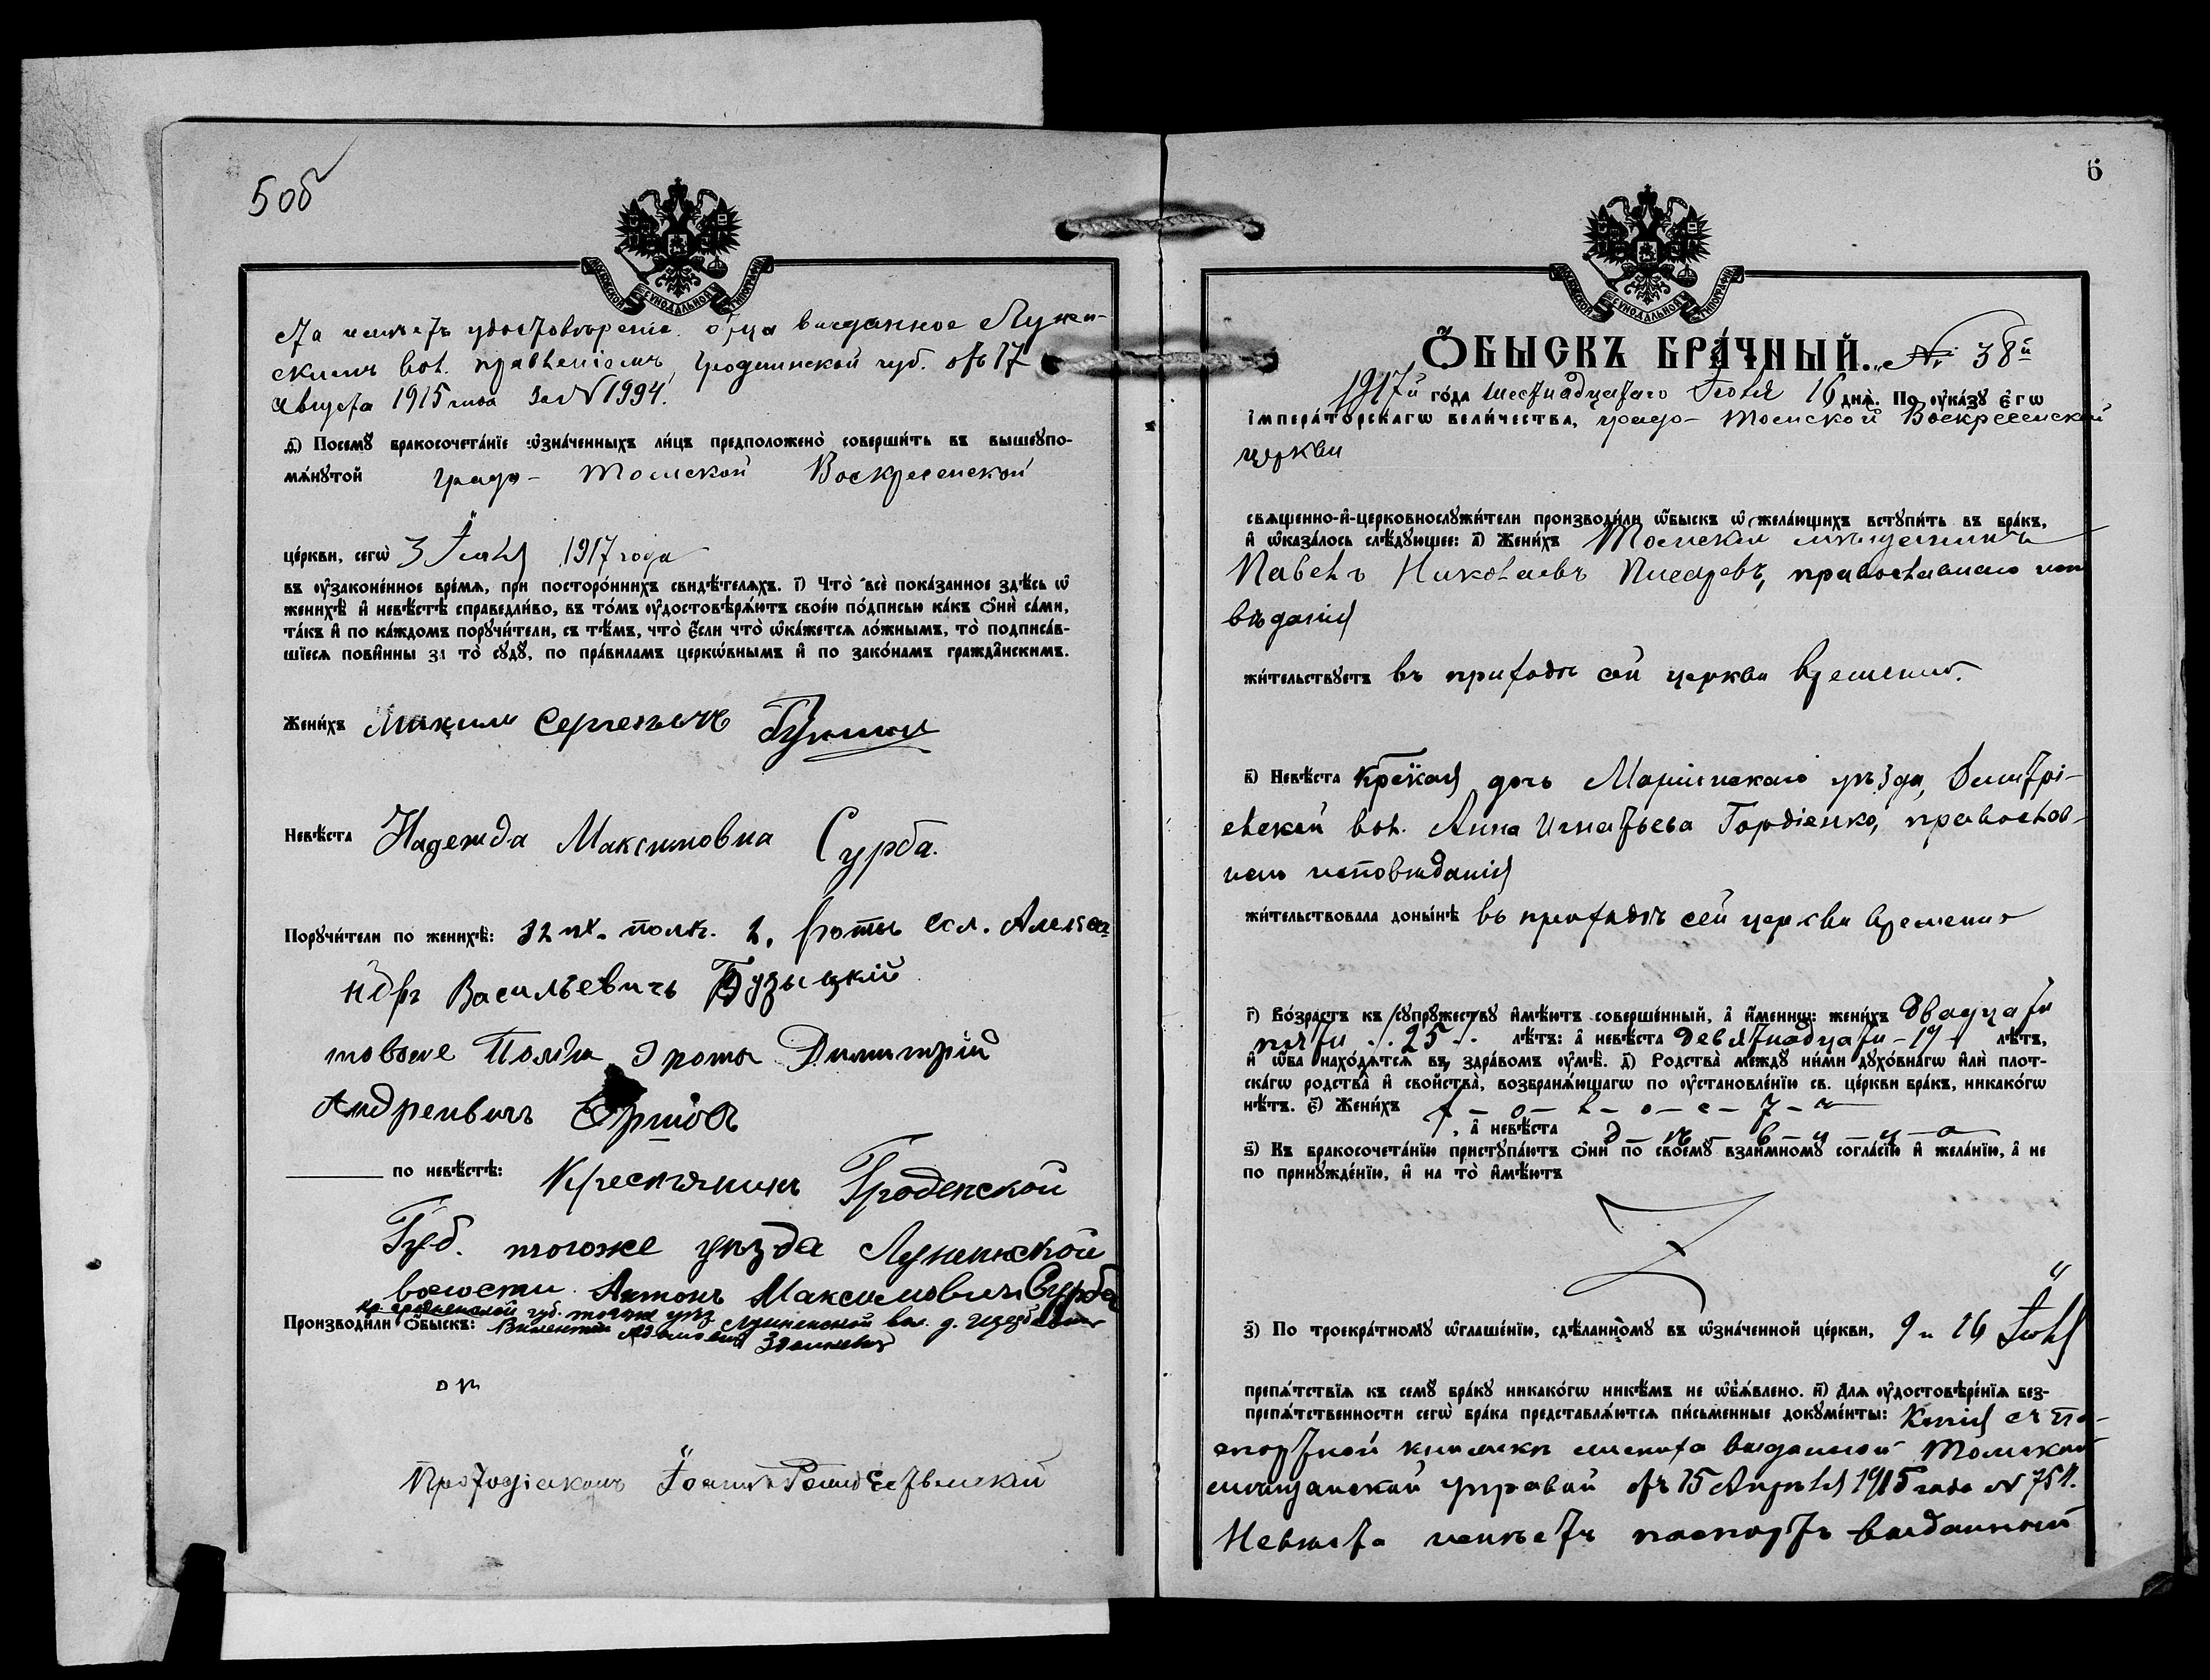 5 об
МОСКОВСКОЙ СѴНОДАЛЬНОЙ ТИПОГРАФІИ
ста имѣетъ удостовѣреніе отца выданное Лунен-
скимъ вол. правленіемъ, Гродненской губ. отъ 17
августа 1915 года за № 1994.
д҃) Посемꙋ̀ бракосочета́нїе ѡ҆зна́ченныхъ ли́цъ предположено̀ соверши́ть въ вышеꙋпо-
мѧ́нꙋтой градо- Томской Воскресенской
це́ркви, сегѡ̀ 3 Іюля 1917 года
въ ᲂу҆законе́нное вре́мѧ, при посторо́ннихъ свидѣ́телѧхъ. і҃) Что̀ всѐ пока́занное здѣ́сь ѡ҆
женихѣ̀ и҆ невѣ́стѣ справедли́во, въ то́мъ ᲂу҆достовѣрѧ́ютъ свое́ю по́дписью ка́къ ѻ҆нѝ са́ми,
та́къ и҆ по ка́ждомъ порꙋчи́тели, съ тѣ́мъ, что̀ є҆́сли что̀ ѡ҆ка́жетсѧ ло́жнымъ, то̀ подписа́в-
шїесѧ пови́нны за то̀ сꙋдꙋ̀, по пра́виламъ церкѡ́внымъ и҆ по зако́намъ гражда́нскимъ.
Жени́хъ Максим Сергеевичъ
Невѣ́ста Надежда Максимовна Сурба.
Порꙋчи́тели по женихѣ̀: 32 пх. полк. 2. роты Алекса
ндръ Васильевичъ
тогоже Полка роты Димитрій
Андреевичъ Ершовъ
по невѣ́стѣ: Крестьянинъ Гроденской
Губ. тогоже уѣзда Луненской
волости Антонъ Максимовичъ Сурба
кр. гродненской губ. тогоже уѣз. Луненской вол. д.
Производи́ли ѻ҆́быскъ: Адамовичъ
Протодіаконъ Іоаннъ
6
МОСКОВСКОЙ СѴНОДАЛЬНОЙ ТИПОГРАФІИ
Ѻ҆́БЫСКЪ БРА́ЧНЫЙ. № 38й
1917й го́да шестнадцатаго Іюня 16 днѧ̀. По ᲂу҆ка́зꙋ є҆гѡ̀
і҆мпера́торскагѡ вели́чества, градо- Томской Воскресенской
церкви
свѧщенно-и҆-церковнослꙋжи́тели производи́ли ѻ҆́быскъ ѡ҆ жела́ющихъ встꙋпи́ть въ бра́къ,
и҆ ѡ҆каза́лось слѣ́дꙋющее: а҃) Жени́хъ Томскій мѣщанинъ
Павелъ Николаевъ Писаревъ, православнаго испо
вѣданія
жи́тельствꙋетъ въ приходѣ сей церкви временно.
в҃) Невѣ́ста Кр̅ская дочь Маріинскаго уѣзда, Дмитрі-
евской вол. Анна Игнатьева Гордіенко, православ-
наго исповѣданія
жи́тельствовала доны́нѣ въ приходѣ сей церкви временно
г҃) Во́зрастъ къ сꙋпрꙋ́жествꙋ и҆мѣ́ютъ соверше́нный, а҆ и҆́меннѡ: жени́хъ двадцати
пяти - 25 - лѣ́тъ: а҆ невѣ́ста девятнадцати - 19 - лѣ́тъ,
и҆ ѻ҆́ба нахо́дѧтсѧ въ здра́вомъ ᲂу҆мѣ̀. д҃) Родства̀ междꙋ̀ ни́ми дꙋхо́внагѡ и҆лѝ плот-
ска́гѡ родства̀ и҆ сво́йства̀, возбранѧ́ющагѡ по ᲂу҆становле́нїю св. це́ркви бра́къ, никако́гѡ
нѣ́тъ. є҃) Жени́хъ х - о - л - о - с - т - ъ
, а҆ невѣ́ста д - ѣ - в - и - ц - а
ѕ҃) Къ бракосочета́нїю пристꙋпа́ютъ ѻ҆нѝ по своемꙋ̀ взаи́мномꙋ согла́сїю и҆ жела́нїю, а҆ не
по принꙋжде́нїю, и҆ на то̀ и҆мѣ́ютъ
з҃) По троекра́тномꙋ ѡ҆глаше́нїю, сдѣ́ланномꙋ въ ѡ҆зна́ченной це́ркви, 9 и 16 Іюля
препѧ́тствїѧ къ семꙋ̀ бра́кꙋ никако́гѡ никѣ́мъ не ѡ҆б̾ѧ́влено. и҃) Длѧ ᲂу҆достовѣре́нїѧ без-
препѧ́тственности сегѡ̀ бра́ка представлѧ́ютсѧ пи́сьменные докꙋме́нты: Копія съ па-
спортной книжки жениха выданной Томской
мѣщанской управой отъ 15 Апрѣля 1915 года № 751.
Невѣста имѣетъ паспортъ выданный